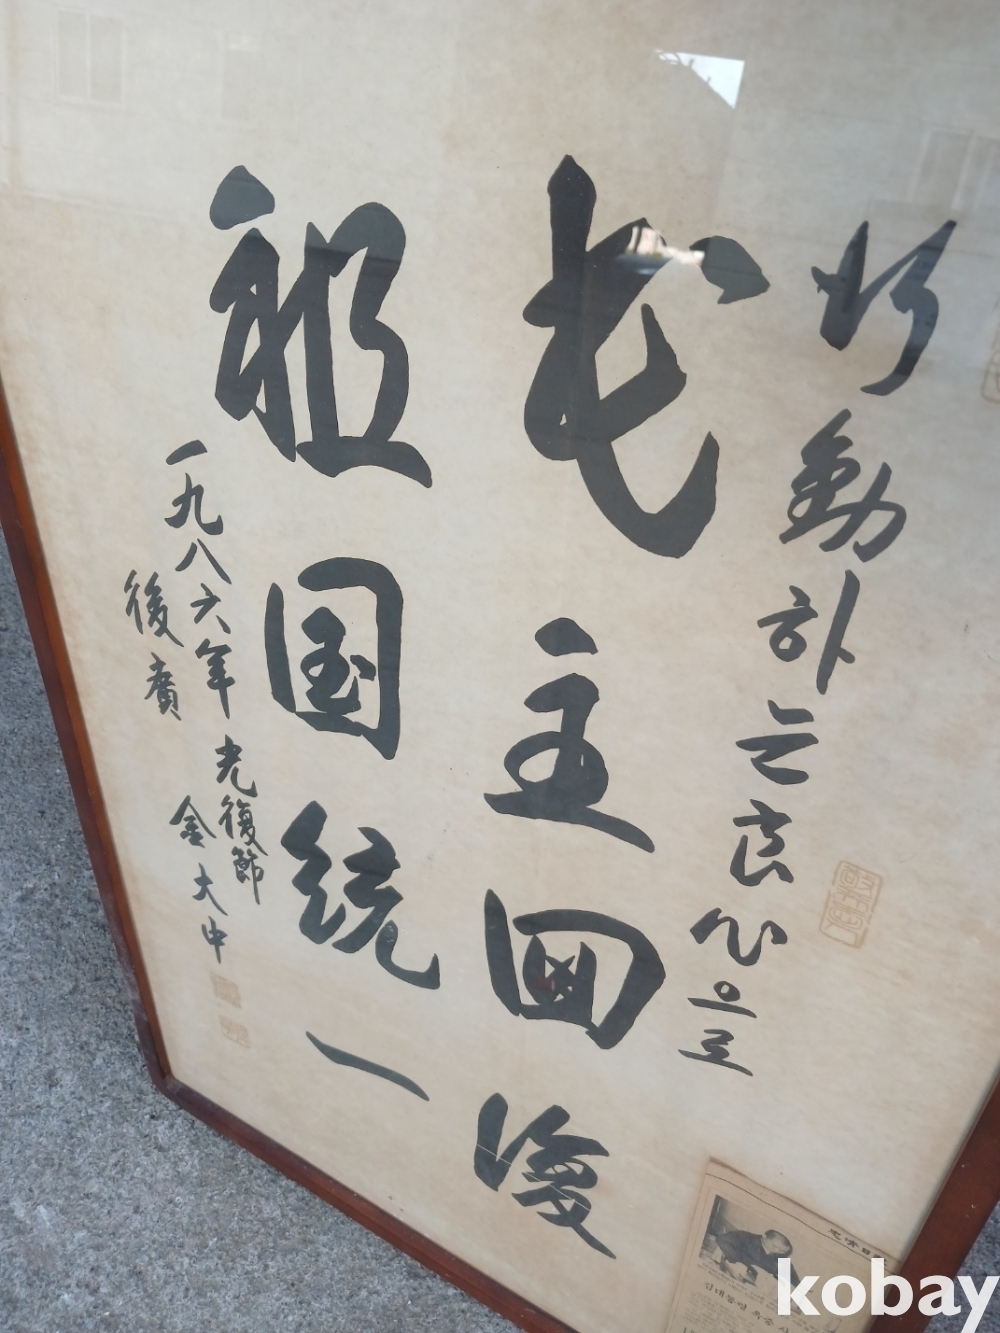 行動하는良心으로
民主囬復
祖国統一
一九八六年 光復節
後廣 金大中
kobay